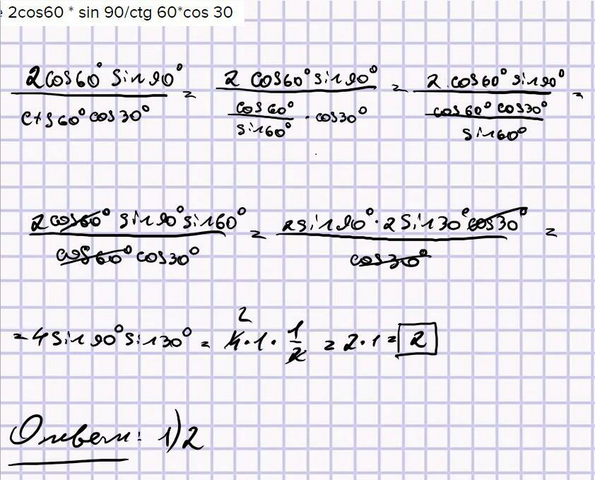 2cos60 * sin 90/ctg 60*cos 30
2cos60° sin90° / ctg60° cos30° = 2 cos60° sin90° / (cos60° / sin60° · cos30°) = 2 cos60° sin90° / (cos60° cos30° / sin60°) =
2cos60° sin90° sin60° / cos60° cos30° = 2sin90° · 2sin30° cos30° / cos30° =
= 4sin90° sin30° = 4 2 · 1 · 1/2 = 2 · 1 = 2
Ответ: 1) 2